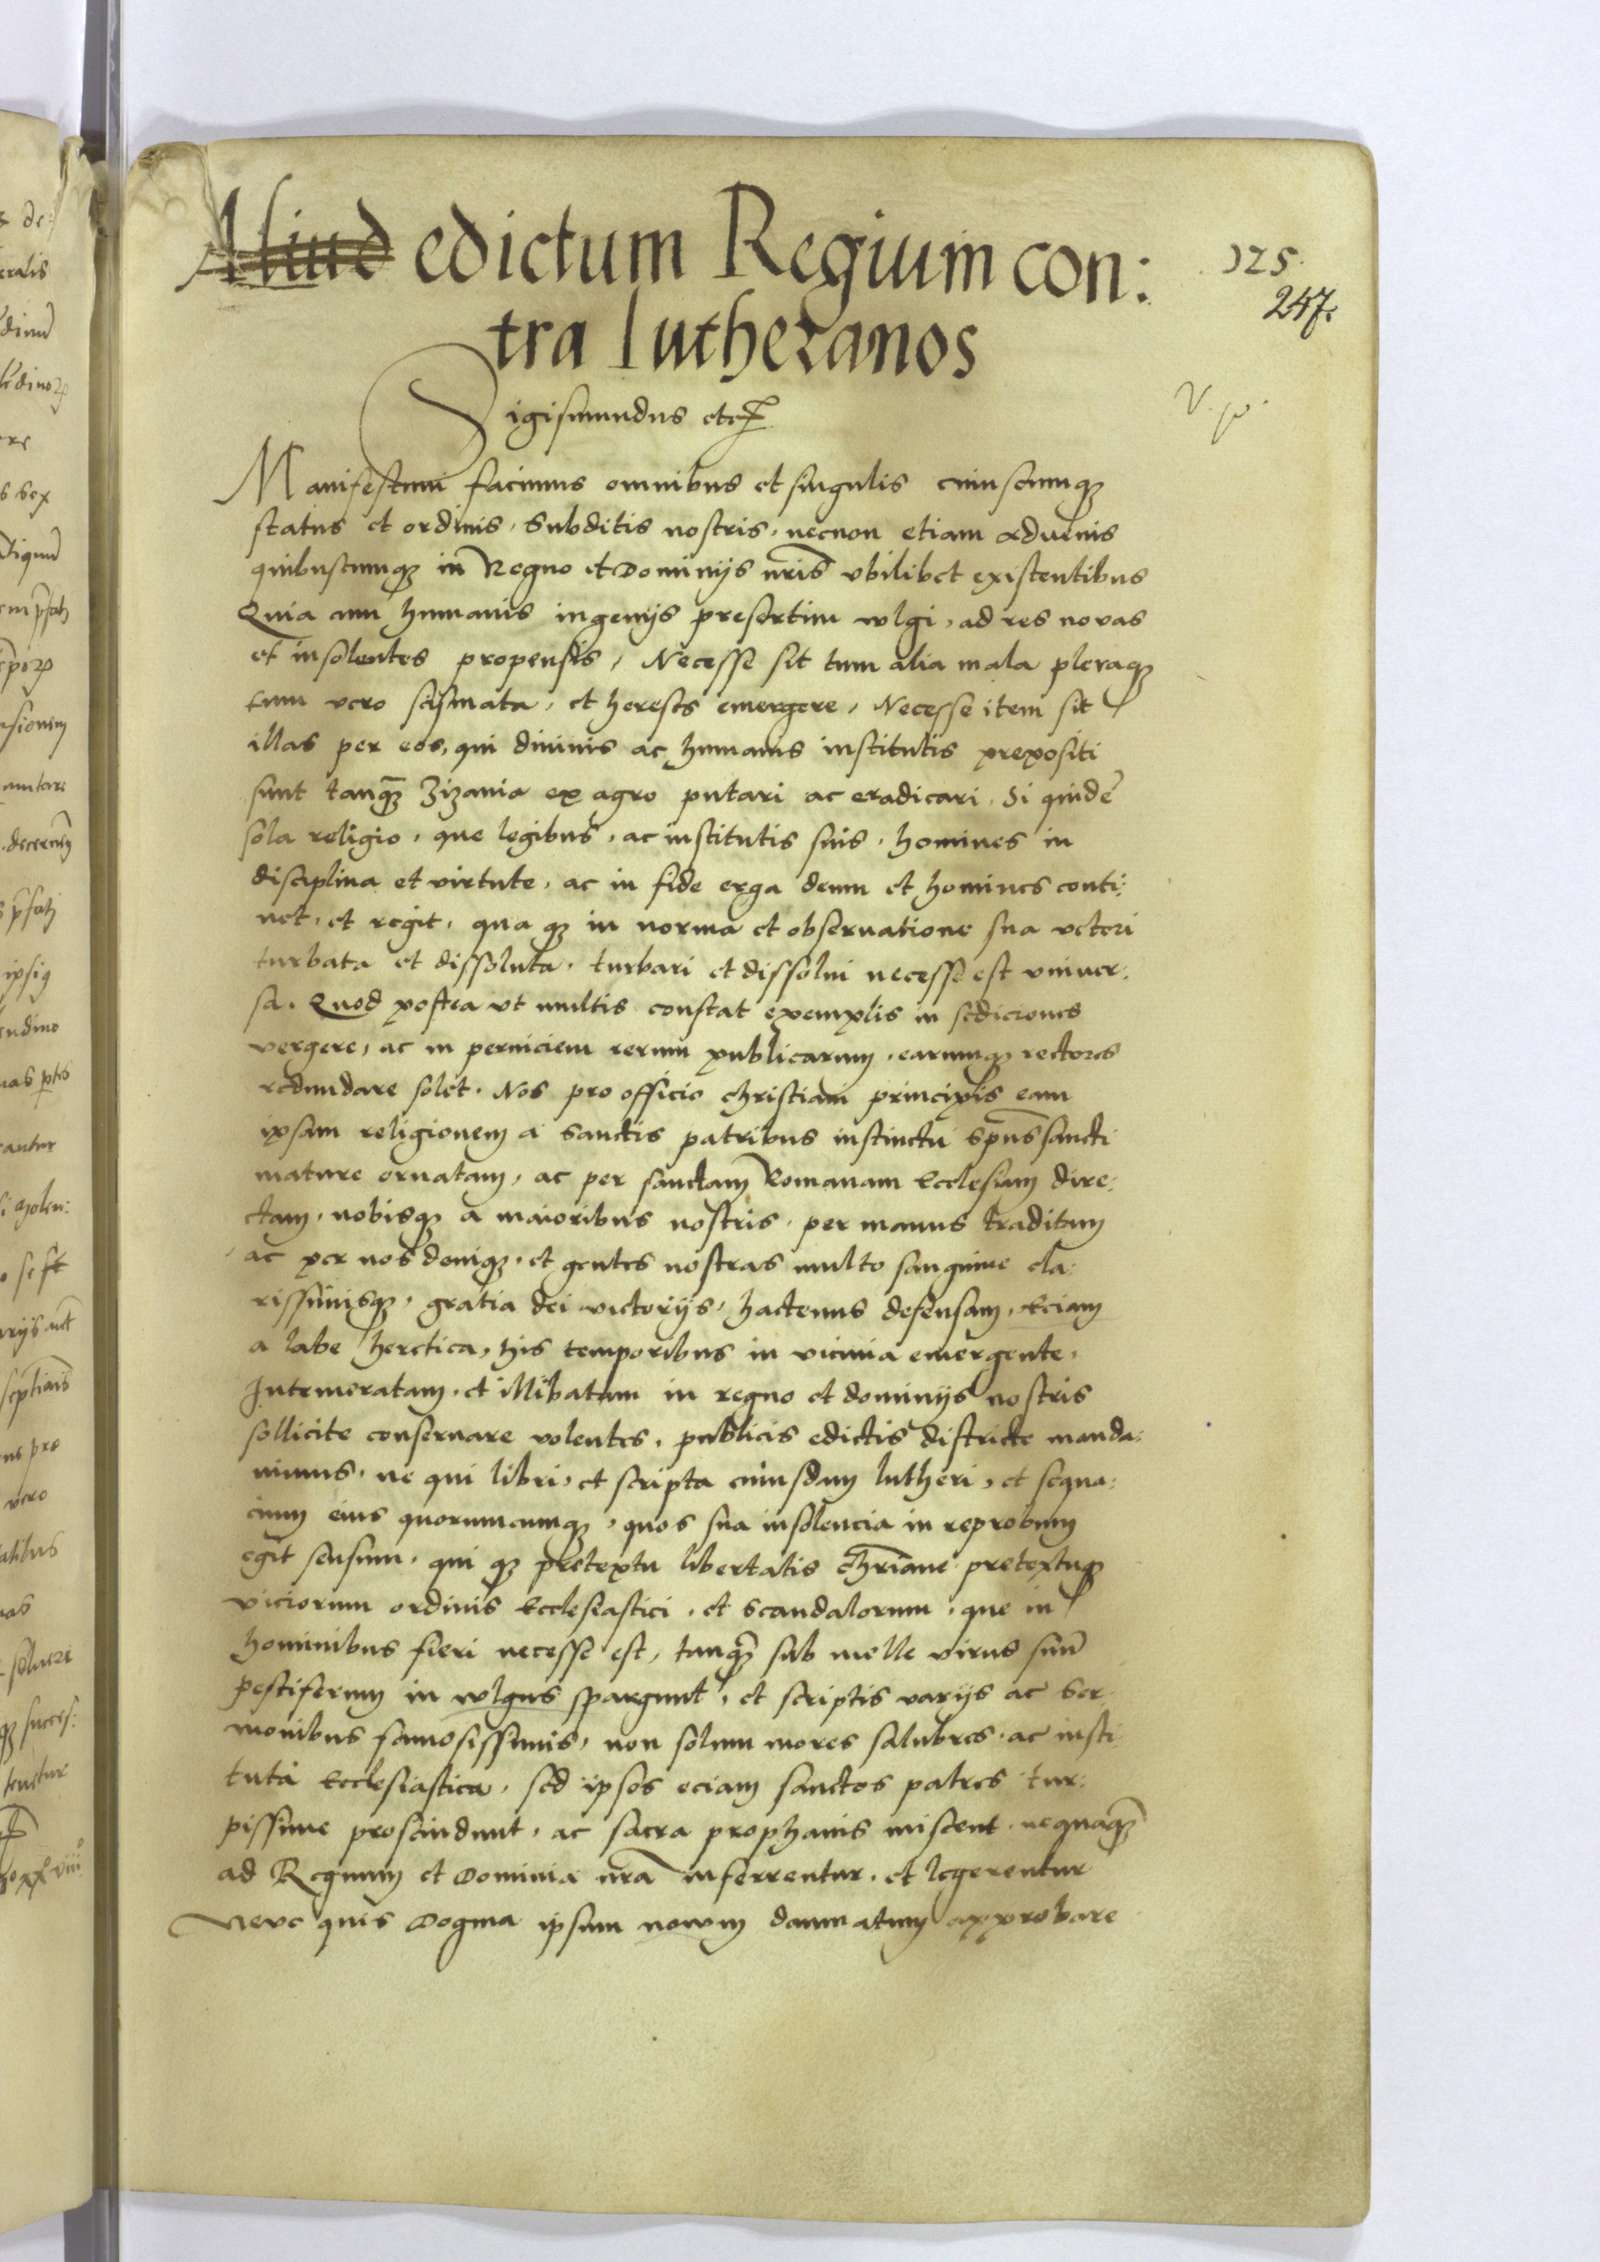 Aliud edictum Regium con:
tra lutheranos
325.
247.
Sigismundus etc
Manifestum facimus omnibus et singulis cuiuscumqȝ
status et ordinis, Subditis nostris, necnon etiam advenis
quibuscumqȝ in Regno et Dominijs nr̃is vbilibet existentibus
Quia cum humanis ingenijs presertim wlgi, ad res novas
et insolentes propensis, Necesse sit tum alia mala pleraqȝ
tum vero scismata, et hereses emergere, Necesse item sit
illas per eos, qui diuinis ac humanis institutis prepositi
sunt tanqȝ̃ Zizania ex agro putari ac eradicari. Si quidẽ
sola religio, que legibus, ac institutis suis, homines in
disciplina et virtute, ac in fide erga deum et homines conti:
net, et regit, qua qȝ in norma et obseruatione sua veteri
turbata et dissoluta, turbari et dissolui necesse est vniuer:
sa. Quod postea vt multis constat exemplis in sediciones
vergere, ac in perniciem rerum publicarum, earumqȝ rectores
redundare solet. Nos pro officio christiani principis eam
ipsam religionem a sanctis patribus instinctu sp̃us sancti
mature ornatam, ac per sanctam Romanam Ecclesiam dire:
ctam, nobisqȝ a maioribus nostris, per manus traditam
ac per nos deniqȝ, et gentes nostras multo sanguine cla:
rissimisqȝ, gratia dei victorijs, hactenus defensam, Eciam
a labe heretica, his temporibus in vicinia emergente,
Intemeratam, et illibatam in regno et dominijs nostris
sollicite conseruare volentes, publicis edictis districte manda:
uimus, ne qui libri, et scripta cuiusdam lutheri, et sequa:
cium eius quorumcumqȝ, quos sua insolencia in reprobum
egit sensum, qui qȝ pretextu libertatis chr̃iane pretextuqȝ
viciorum ordinis Ecclesiastici, et scandalorum, que in
hominibus fieri necesse est, tanqȝ̃ sub melle virus suũ
pestiferum in wlgus spargunt, et scriptis varijs ac ser
monibus famosissimis, non solum mores salubres, ac insti
tuta Ecclesiastica, sed ipsos eciam sanctos patres tur:
pissime proscindunt, ac sacra prophanis miscent, nequaqȝ̃
ad Regnum et Dominia nr̃a inferrentur, et legerentur
Neve quis Dogma ipsum novum damnatum approbare